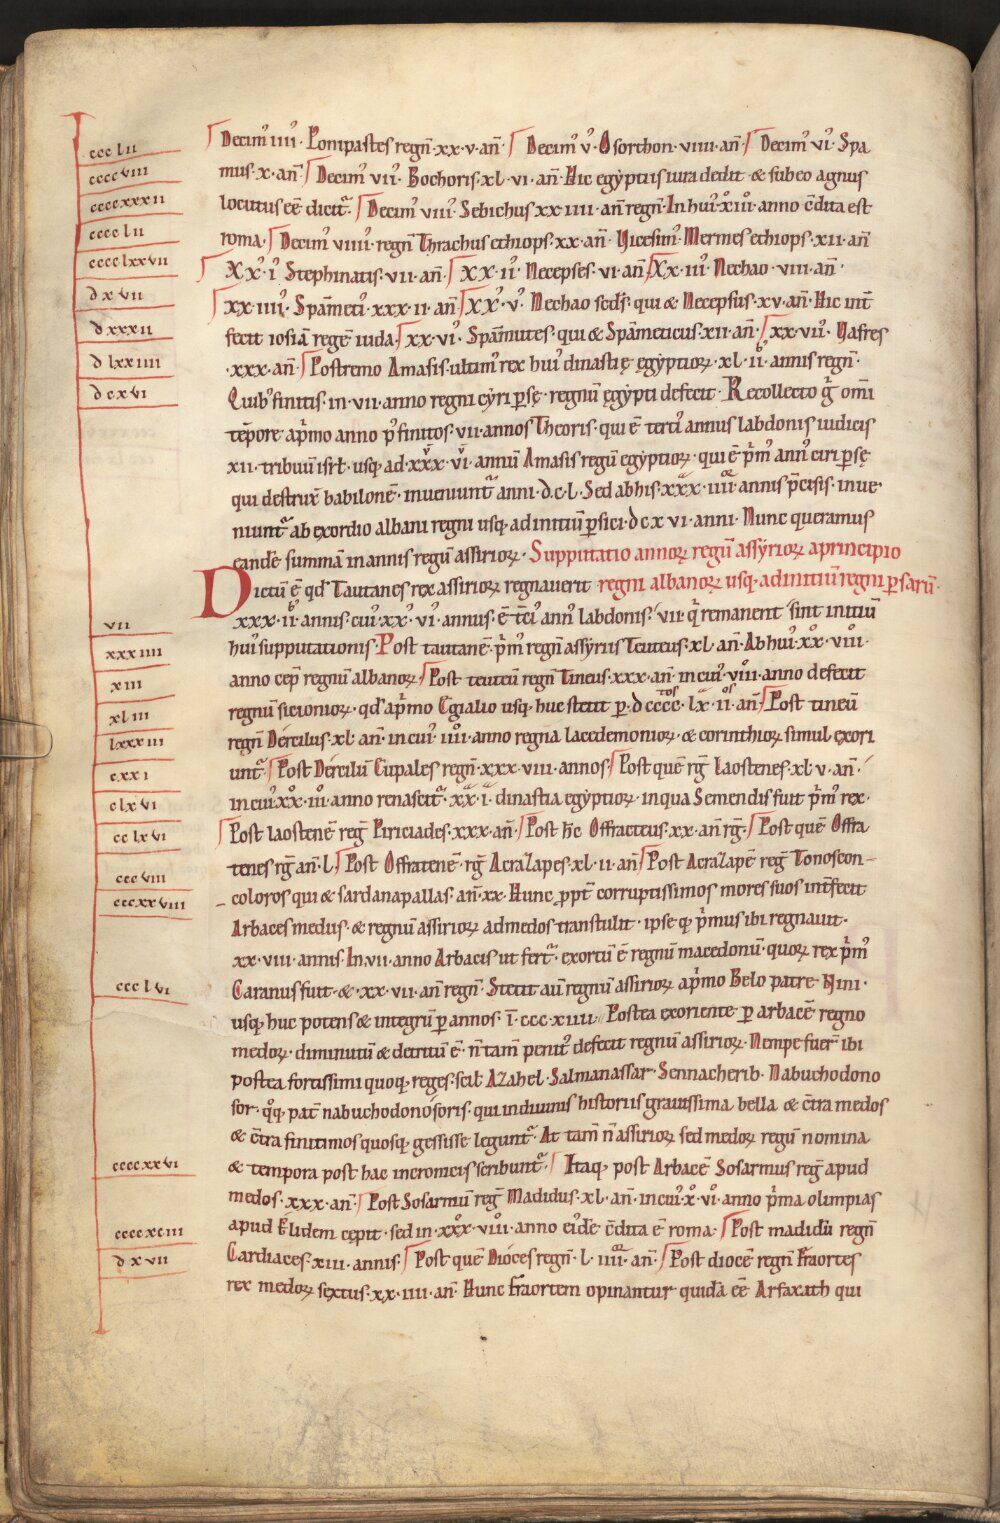 ccc lii
cccc viii
cccc xxx ii
cccc lii
cccc lxx vii
d x vii
d xxx ii
d lxx iiii
d c x vi
Decim' iiii' · Pompastes regñ · xx · v · añ · Decim' v' · Osorthon · viiii · añ · Decim' vi' · Spa
mus · x · añ · Decim' vii' · Bochoris · xl · vi · añ · Hic egẏptiis iura dedit · & sub eo agnus
locutus eē dicit' · Decim' viii' · Sebichus xx iiii · añ regñ · In hui' xiii° · anno c̄dita est
roma · Decim' viiii' · regñ Thrachus ethiops · xx · añ · Vicesim' · Mermes ethiops · xii · añ
Xx' · i' Stephinatis · vii · añ · XX · ii' · Necepses · vi · añ · Xx · iii' · Nechao · viii · añ ·
xx · iiii' · Spām̄eti' · xxx · ii · añ · XX' · v' · Nechao sed's · qui & Necepsus · xv · añ · Hic int̄
fecit iosiā regē iuda · xx · vi' · Spām̄utes · qui & Spām̄eticus · xii · añ · xx · vii' · Vafres
· xxx · añ · Postremo Amasis · ultim' rex hui' dinastię egẏptioꝝ · xl · ii · annis regñ ·
Quib' finitis · in · vii · anno regni cẏri p̱sę · regnū egẏpti defecit · Recollecto g̊ om̄i
tēpore ap̱mo anno p' finitos · vii · annos Theoris · qui ē terti' annus labdonis iudicis
xii · tribuū isrł · usq; ad · xxx · vi · annū Amasis regū egẏptioꝝ · qui ē p̱m' ann' ciri p̱sę
qui destrux̄ babilonē · inueniunt' anni · d · c · l · Sed ab his · xxx · iiii · annis p̄cisis · inue
niunt' ab exordio albani regni usq; ad initiū p̱sici · d c x vi · anni · Nunc queramus
eandē summā in annis regū assirioꝝ · Supputatio annoꝝ regū assẏrioꝝ a principio
Dictū ē qđ Tautanes rex assirioꝝ regnauerit regni albanoꝝ usq; ad initiū regni p̱sarū ·
vii
xxx · ii · annis · cui' · xx' · vi' · annus · ē t̄ci' ann' labdonis · vii · q̱ remanent sint initiū
xxx iiii
hui' supputationis · Post tautanē · p̱m' regñ assẏriis Teuteus · xl · añ · Ab hui' · xx° · viii° ·
xl iii
anno cep̄ regnū albanoꝝ · Post teuteū regñ Tineus · xxx · añ · in cui' · viii° · anno defecit
regnū sicionioꝝ · qđ ap̱mo Egialio usq; huc stetit p̱ · d cccc · lx · ii · añ · Post tineū
lxxx iii
regñ Dercilus · xl · añ · in cui' · iiii° · anno regna lacedemonioꝝ · & corinthioꝝ simul exori
c xx i
unt' · Post Dercilū Eupales regñ · xxx · viii · annos · Post quē rḡ Laostenes · xl · v · añ ·
c lx vi
in cui' · xx° · iii° · anno renascit' · xx · i · dinastia egẏptioꝝ · in qua Semendis fuit p̱m' rex ·
cc lx vi
Post Laostenē reḡ Piriciades · xxx · añ · Post h̄c Offracteus · xx · añ rḡ · Post quē Offra
ccc viii
tenes rḡ añ · l · Post Offratenē · rḡ Acralapes · xl · ii · añ · Post Acralapē reḡ Tonoscon-
ccc xx viii
coloros qui & sardanapallas · añ · xx · Hunc ꝓpt̄ corruptissimos mores suos int̄fecit
Arbaces medus · & regnū assirioꝝ ad medos transtulit · ipse q; p̱mus ibi regnauit ·
xx · viii · annis · In · vii · anno Arbacis ut fert' · exortū ē regnū macedonū · quoꝝ rex p̱m'
ccc l vi
Caranus fuit · & · xx · vii · añ regñ · Stetit aū regnū assirioꝝ ap̱mo Belo patre Nini ·
usq; huc potens & integrū p̱ annos · ī · ccc · x iiii · Postea exoriente p̱ arbacē regno
medoꝝ · diminutū & detritū ē · ñ tam̄ penit' defecit regnū assirioꝝ · Nempe fuer̄ ibi
postea fortissimi quoq; reges · scił Azahel · Salmanassar · Sennacherib · Nabuchodono
sor · q̊q; pat̄ nabuchodonosoris · qui in diuinis historiis grauissima bella & c̄tra medos
& c̄tra finitimos quosq; gessisse legunt' · At tam̄ ñ assirioꝝ sed medoꝝ regū nomina
cccc xx vi
& tempora post hac in cronicis scribunt' · Itaq; post Arbacē Sosarmus reḡ apud
medos · xxx · añ · Post Sosarmū reḡ Madidus · xl · añ · in cui' · x° · vi° · anno p̱ma olimpias
cccc xc iii
apud Elidem cępit · sed in · xxx° · viii° · anno ei'dē c̄dita ē roma · Post madidū regñ
d x vii
Cardiaces · xiii · annis · Post quē Dioces regñ · l · iiii · añ · Post diocē regñ Fraortes
rex medoꝝ sextus · xx · iiii · añ · Hunc fraortem opinantur quidā eē Arfaxath qui